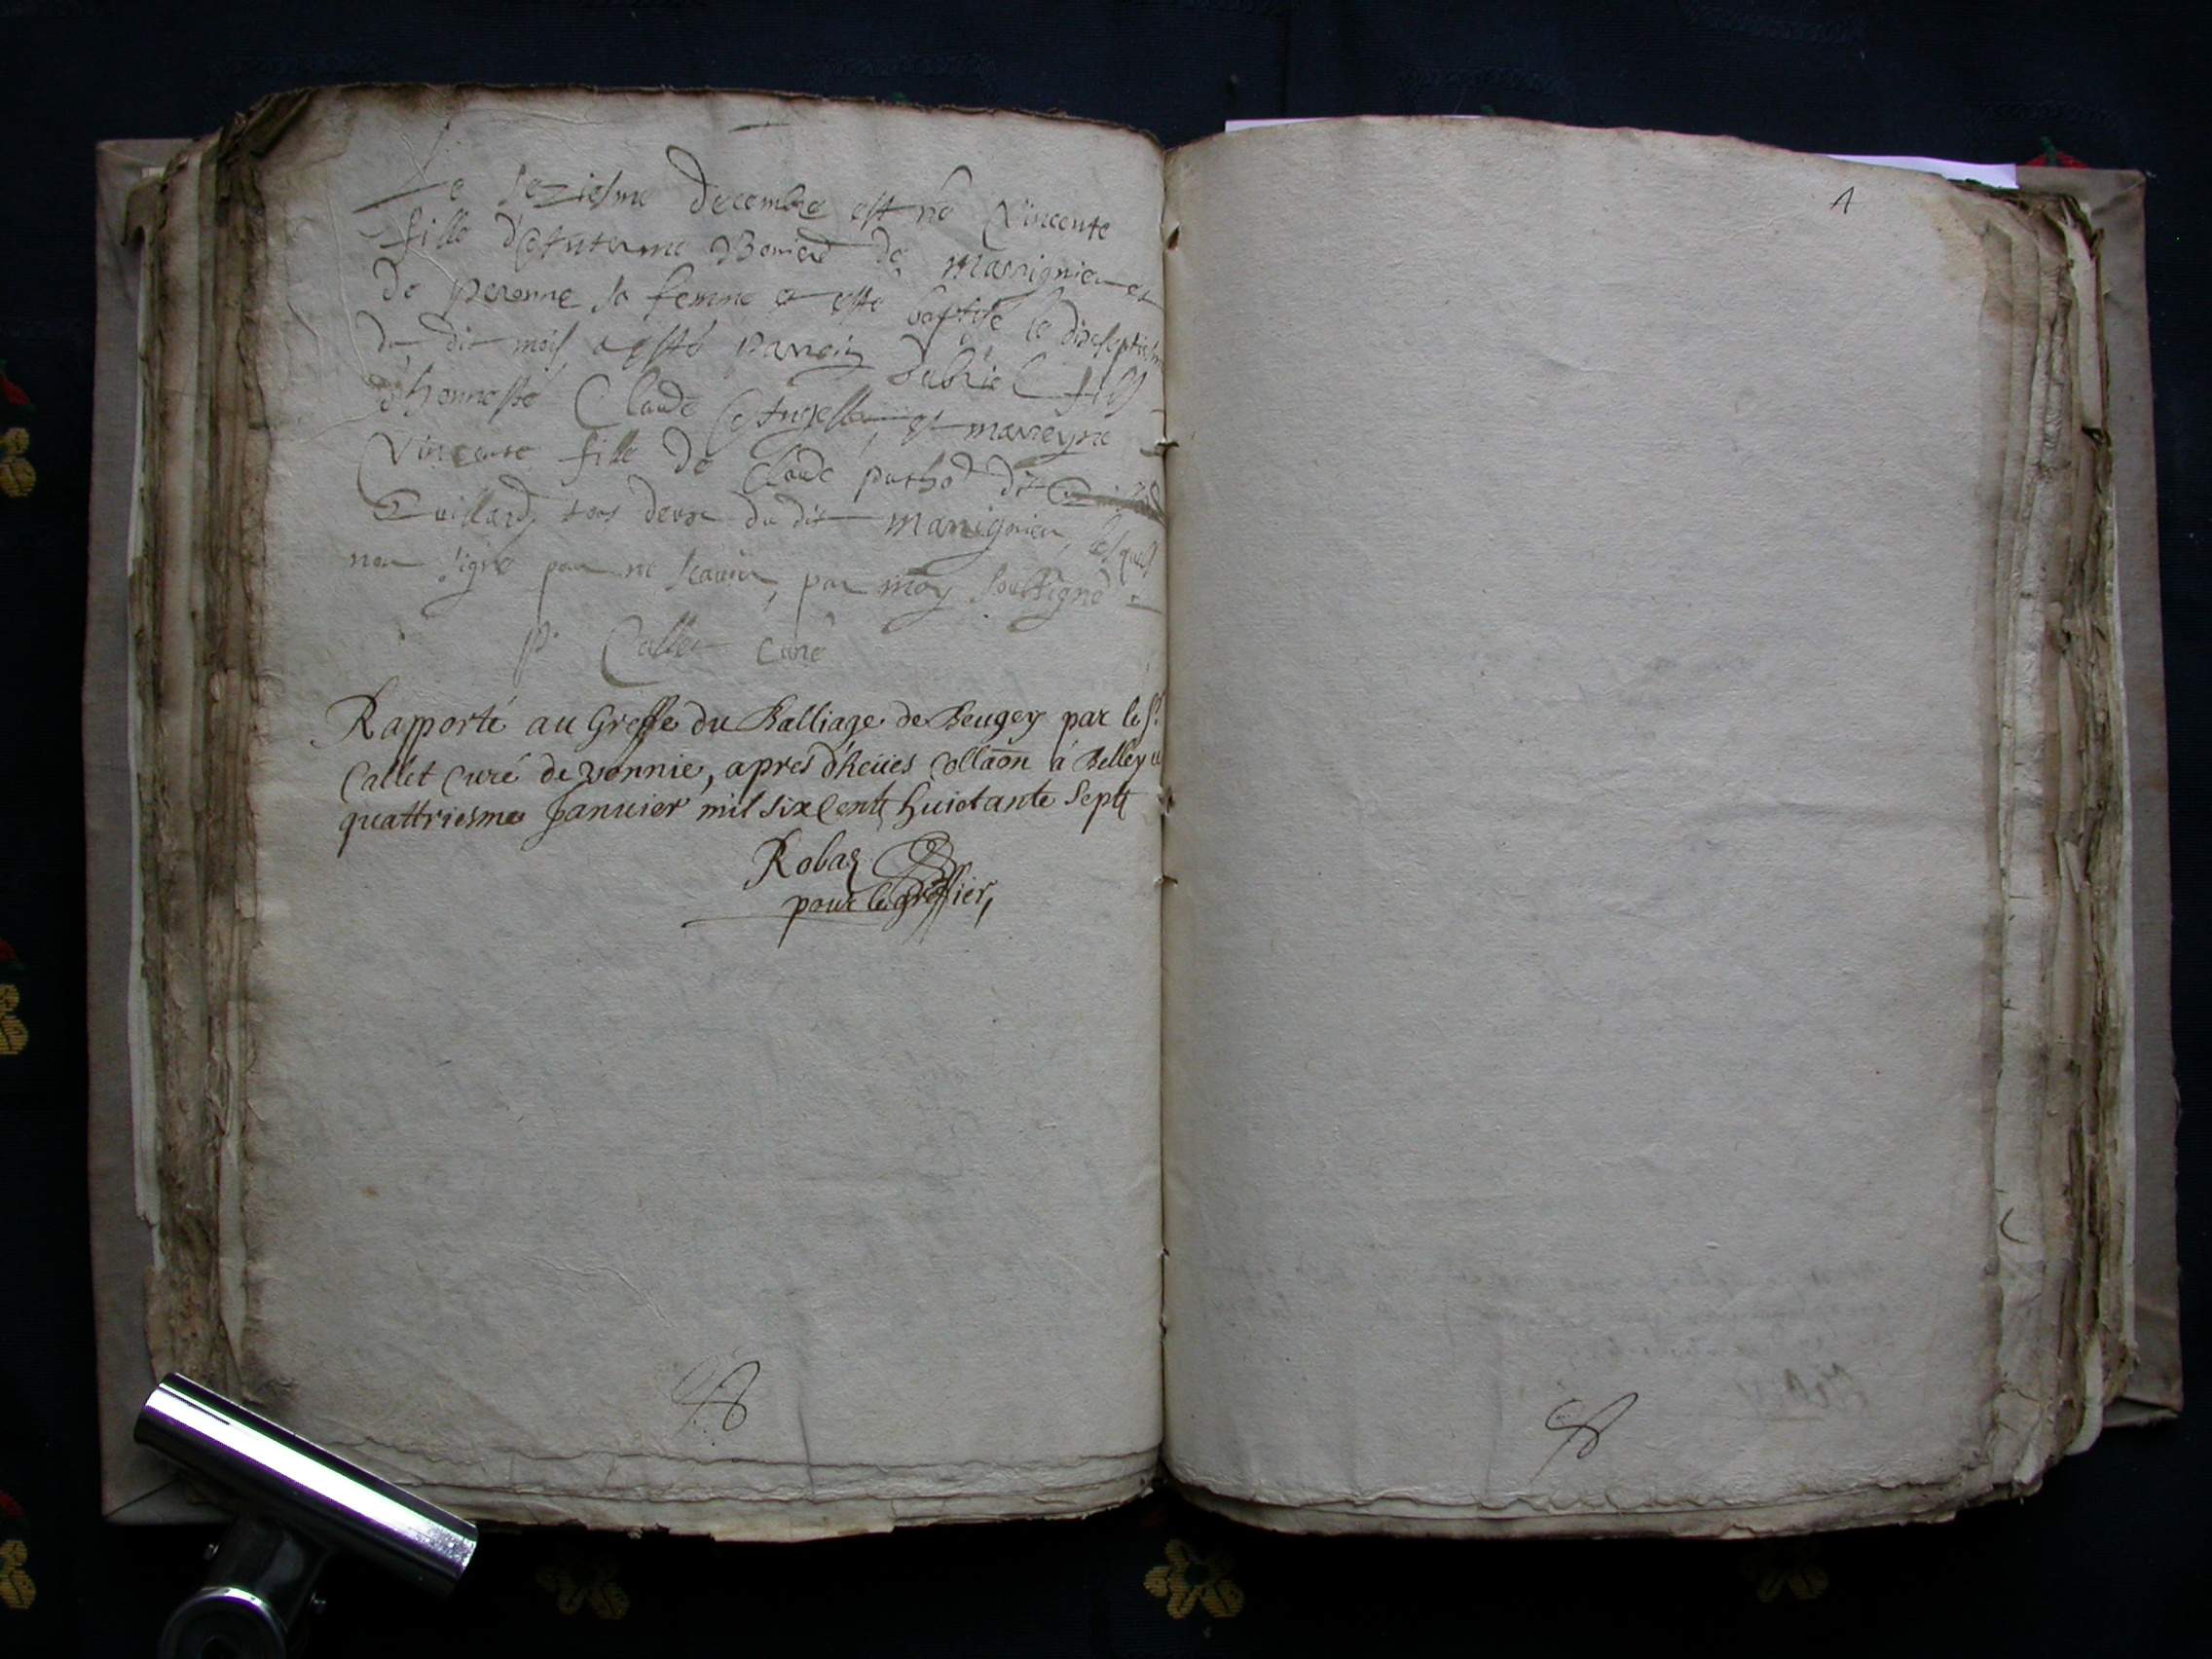 Le seziesme decembre est né Vincente
fille d'Anterme de Marignieu et
de peronne sa femme et esté baptisé le dixseptiesme
du dit mois a esté parrein Gabriel fils
d'honnesté Claude et marreyne
Vincente fille de Claude pachod dit
Guillard, tous deux du dit Marignieu, lesquels
non signé pour ne scavoir, par moy soubsigné
P. Callet curé
Rapporté au Greffe du Balliage de Beugey par le Sr.
Callet Curé de vonnie, apres d'heües Collãon á Belley le
quattriesme Januier mil six Centz huictante Septz
Robaz
pour le greffier,
1